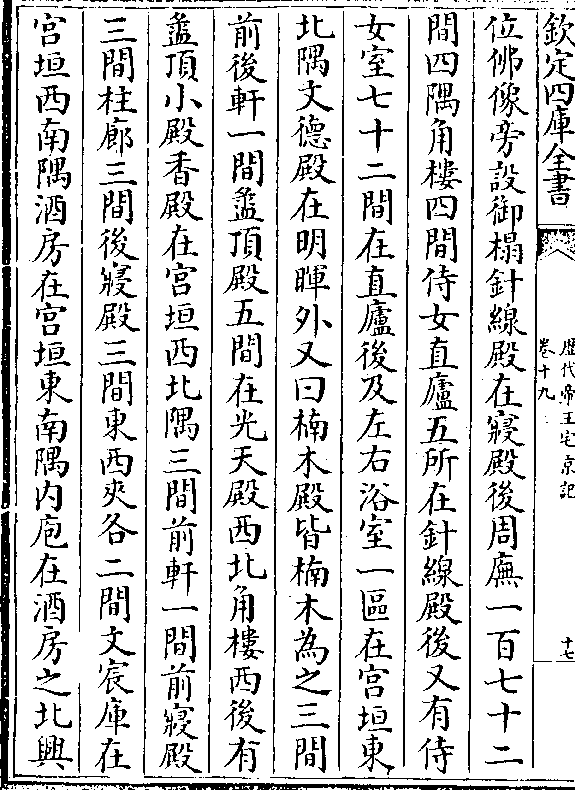 欽定四庫全書
歴代帝王宅京記
卷十九
十七
位佛像旁設御榻針線殿在寢殿後周廡一百七十二
間四隅角樓四間侍女直廬五所在針線殿後又有侍
女室七十二間在直廬後及左右浴室一區在宮垣東
北隅文德殿在明暉外又曰楠木殿皆楠木為之三間
前後軒一間盝頂殿五間在光天殿西北角樓西後有
盝頂小殿香殿在宮垣西北隅三間前軒一間前寢殿
三間柱廊三間後寢殿三間東西夾各二間文宸庫在
宮垣西南隅酒房在宮垣東南隅内庖在酒房之北興